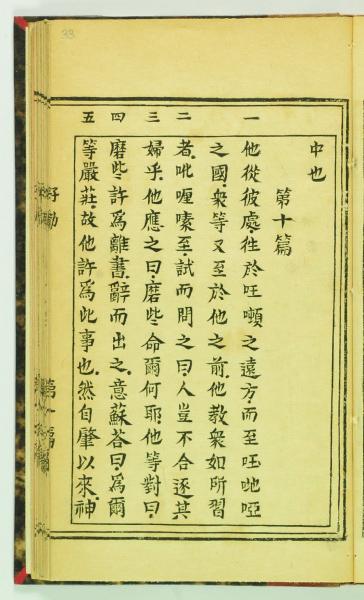 33
中也
第十篇
一 他從彼處徃於㕵𠾐之遠方而至㕵吔啞
之國衆等又至於他之前他教衆如所習
二 者吡喱嗦至試而問之曰人豈不合逐其
三 婦乎他應之曰磨些命爾何耶他等對曰
四 磨些許爲離書辭而出之意蘇答曰爲爾
五 等嚴莊故他許爲此事也然自肇以來神